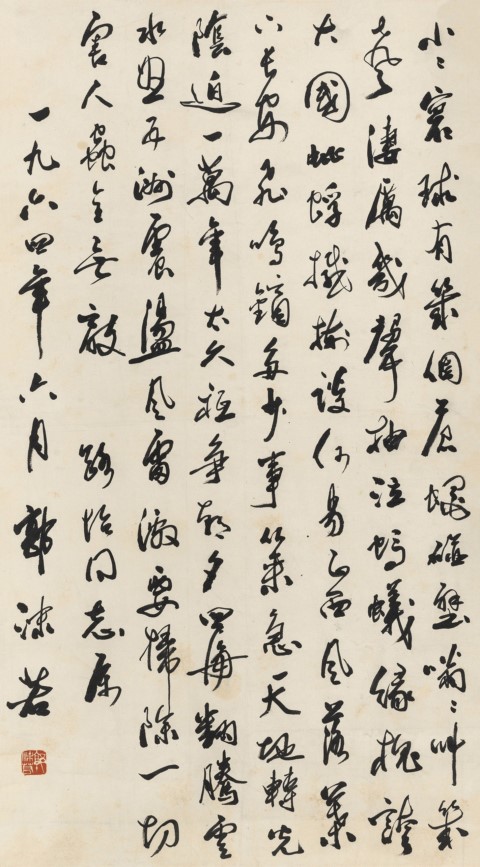 小〻寰球有幾個蒼蠅碰壁嗡〻叫幾
聲淒厲幾聲抽泣螞蟻緣槐誇
大國蚍蜉撼樹談何易正西風落葉
下長安飛鳴鏑多少事從來急天地轉光
陰迫一萬年太久祗爭朝夕四海翻騰雲
水怒五洲震盪風雷激要掃除一切
害人蟲全無敵 路怡同志屬
一九六四年六月 郭沫若